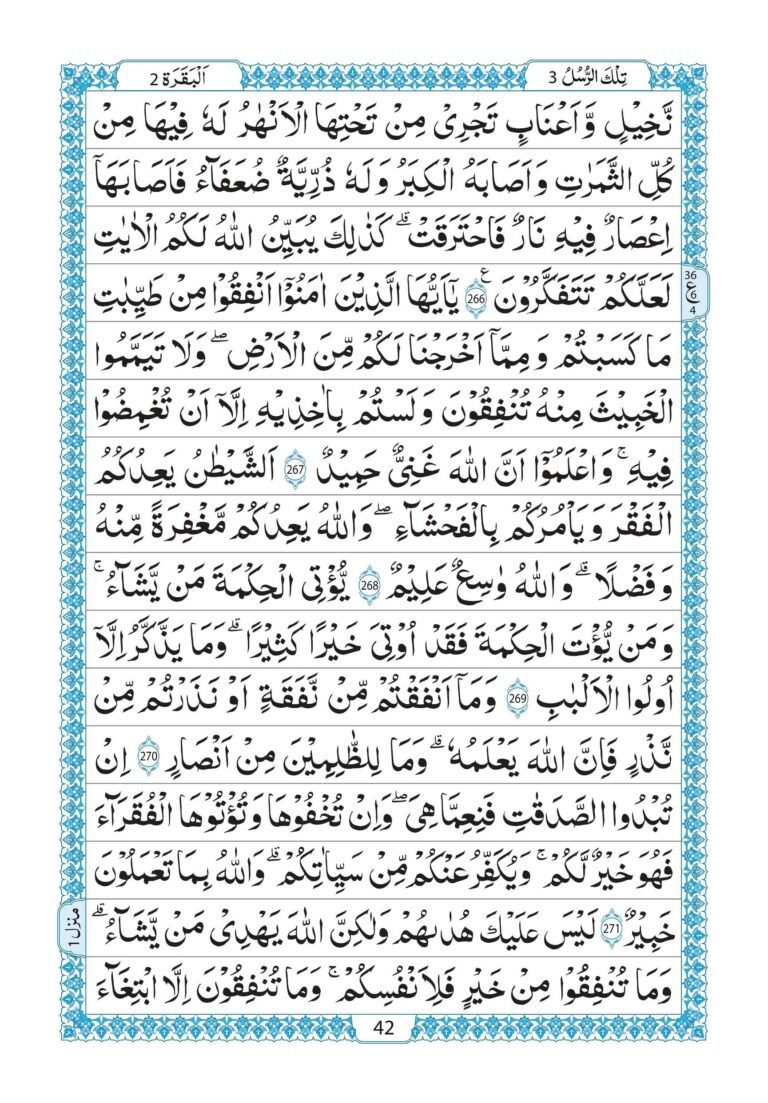 تِلْكَ الرُّسُلُ 3
اَلْبَقَرَة 2
نَّخِيْلٍ وَّاَعْنَابٍ تَجْرِىْ مِنْ تَحْتِهَا الْاَنْهٰرُ لَهٗ فِيْهَا مِنْ
كُلِّ الثَّمَرٰتِ وَاَصَابَهُ الْكِبَرُ وَلَهٗ ذُرِّيَّةٌ ضُعَفَآءُ فَاَصَابَهَاۤ
اِعْصَارٌ فِيْهِ نَارٌ فَاحْتَرَقَتْ ؕ كَذٰلِكَ يُبَيِّنُ اللّٰهُ لَكُمُ الْاٰيٰتِ
لَعَلَّكُمْ تَتَفَكَّرُوْنَ ع 266 يٰۤاَيُّهَا الَّذِيْنَ اٰمَنُوْۤا اَنْفِقُوْا مِنْ طَيِّبٰتِ
36
ع
6
4
مَا كَسَبْتُمْ وَمِمَّاۤ اَخْرَجْنَا لَكُمْ مِّنَ الْاَرْضِ ۖ وَلَا تَيَمَّمُوا
الْخَبِيْثَ مِنْهُ تُنْفِقُوْنَ وَلَسْتُمْ بِاٰخِذِيْهِ اِلَّاۤ اَنْ تُغْمِضُوْا
فِيْهِ ۚ وَاعْلَمُوْۤا اَنَّ اللّٰهَ غَنِىٌّ حَمِيْدٌ 267 اَلشَّيْطٰنُ يَعِدُكُمُ
الْفَقْرَ وَيَاْمُرُكُمْ بِالْفَحْشَآءِ ۖ وَاللّٰهُ يَعِدُكُمْ مَّغْفِرَةً مِّنْهُ
وَفَضْلًا ؕ وَاللّٰهُ وٰسِعٌ عَلِيْمٌ 268 يُّؤْتِى الْحِكْمَةَ مَنْ يَّشَآءُ ۚ
وَمَنْ يُّؤْتَ الْحِكْمَةَ فَقَدْ اُوْتِىَ خَيْرًا كَثِيْرًا ؕ وَمَا يَذَّكَّرُ اِلَّاۤ
اُولُوا الْاَلْبٰبِ 269 وَمَاۤ اَنْفَقْتُمْ مِّنْ نَّفَقَةٍ اَوْ نَذَرْتُمْ مِّنْ
نَّذْرٍ فَاِنَّ اللّٰهَ يَعْلَمُهٗ ؕ وَمَا لِلظّٰلِمِيْنَ مِنْ اَنْصَارٍ 270 اِنْ
تُبْدُوا الصَّدَقٰتِ فَنِعِمَّاهِىَ ۖ وَاِنْ تُخْفُوْهَا وَتُؤْتُوْهَا الْفُقَرَآءَ
فَهُوَ خَيْرٌ لَّكُمْ ۚ وَيُكَفِّرُ عَنْكُمْ مِّنْ سَيِّاٰتِكُمْ ؕ وَاللّٰهُ بِمَا تَعْمَلُوْنَ
خَبِيْرٌ 271 لَيْسَ عَلَيْكَ هُدٰىهُمْ وَلٰكِنَّ اللّٰهَ يَهْدِىْ مَنْ يَّشَآءُ ؕ
منزل 1
وَمَا تُنْفِقُوْا مِنْ خَيْرٍ فَلِاَنْفُسِكُمْ ۚ وَمَا تُنْفِقُوْنَ اِلَّا ابْتِغَآءَ
42